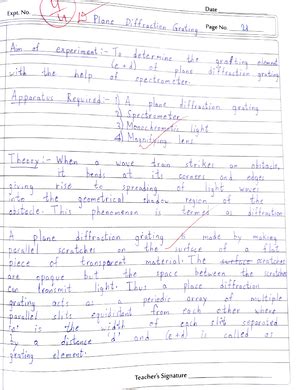 Expt. No.
Date
Plane Diffraction Grating
Page No.
Aim of experiment:- To determine the grafting element
(e+d) of plane diffraction grating
with the help of spectrometer.
Apparatus Required:- 1) A plane diffraction grating
2) Spectrometer
3) Monochromatic light
4) Magnifying lens
Theory:- When a wave train strikes an obstacle,
it bends at its corners and edges
giving rise to spreading of light waves
into the geometrical shadow region of the
obstacle. This phenomenon is termed as diffraction
A plane diffraction grating is made by making
parallel scratches on the surface of a flat
piece of transparent material. The scratches
are opaque but the space between the scratches
can transmit light. Thus a plane diffraction
grating acts as a periodic array of multiple
parallel slits equidistant from each other where
'e' is the width of each slit separated
by a distance 'd' and (e+d) is called as
grating element.
Teacher's Signature